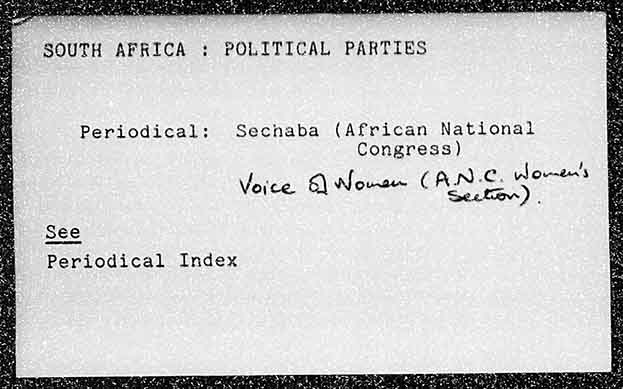 SOUTH AFRICA : POLITICAL PARTIES
Periodical: Sechaba (African National
Congress)
Voice of Women (A.N.C. Women's
Section).
See
Periodical Index